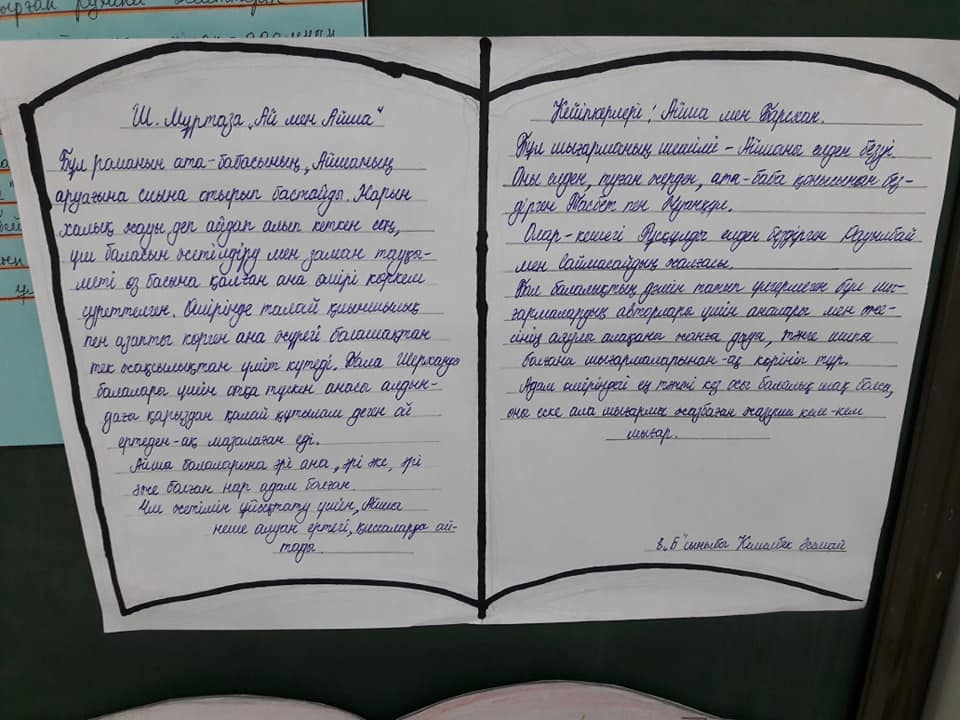 Ш. Мұртаза „Ай мен Айша"
Бұл романын ата-бабасының, Айшаның
аруағына сиына отырып бастайды. Жарын
халық жауы деп айдап алып кеткен соң,
үш баласын жетілдіру мен заман тауқы-
меті өз басына қалған ана өмірі көркем
суреттелген. Өмірінде талай қиыншылық
пен азапты көрген ана жүрегі болашақтан
тек жақсылықтан үміт күтеді. Жаңа Шерханды
балалары үшін отқа түскен анасы алдын-
дағы қарыздан қалай құтылам деген ой
ертеден-ақ мазалаған еді.
Айша балаларына әрі ана, әрі әке, әрі
әже болған нар адам болған.
Үш жетімін ұйықтату үшін, Айша
неше алуан ертегі, қиссаларды ай-
тады.
Кейіпкерлері: Айша мен Барсхан.
Бұл шығарманың шешімі - Айшаны елден безуі.
Оны елден, туған жерден, ата-баба қонысынан без-
дірген Тасбет пен
Олар - кешегі Рысқұлды елден бездірген Саурынбай
мен Саймасайдың жалғасы.
балалықтың дәмін татып үлгермеген бұл шы-
ғармалардың авторлары үшін аналары мен әже-
сінің аялы алақаны жанға дауа, тәнге шипа
болғаны шығармаларынан-ақ көрініп тұр.
Адам өміріндегі ең тәтті кез осы балалық шақ болса,
оны еске ала шығарма жазбаған жазушы кем-кем
шығар.
8„Б" сыныбы Кемелбек